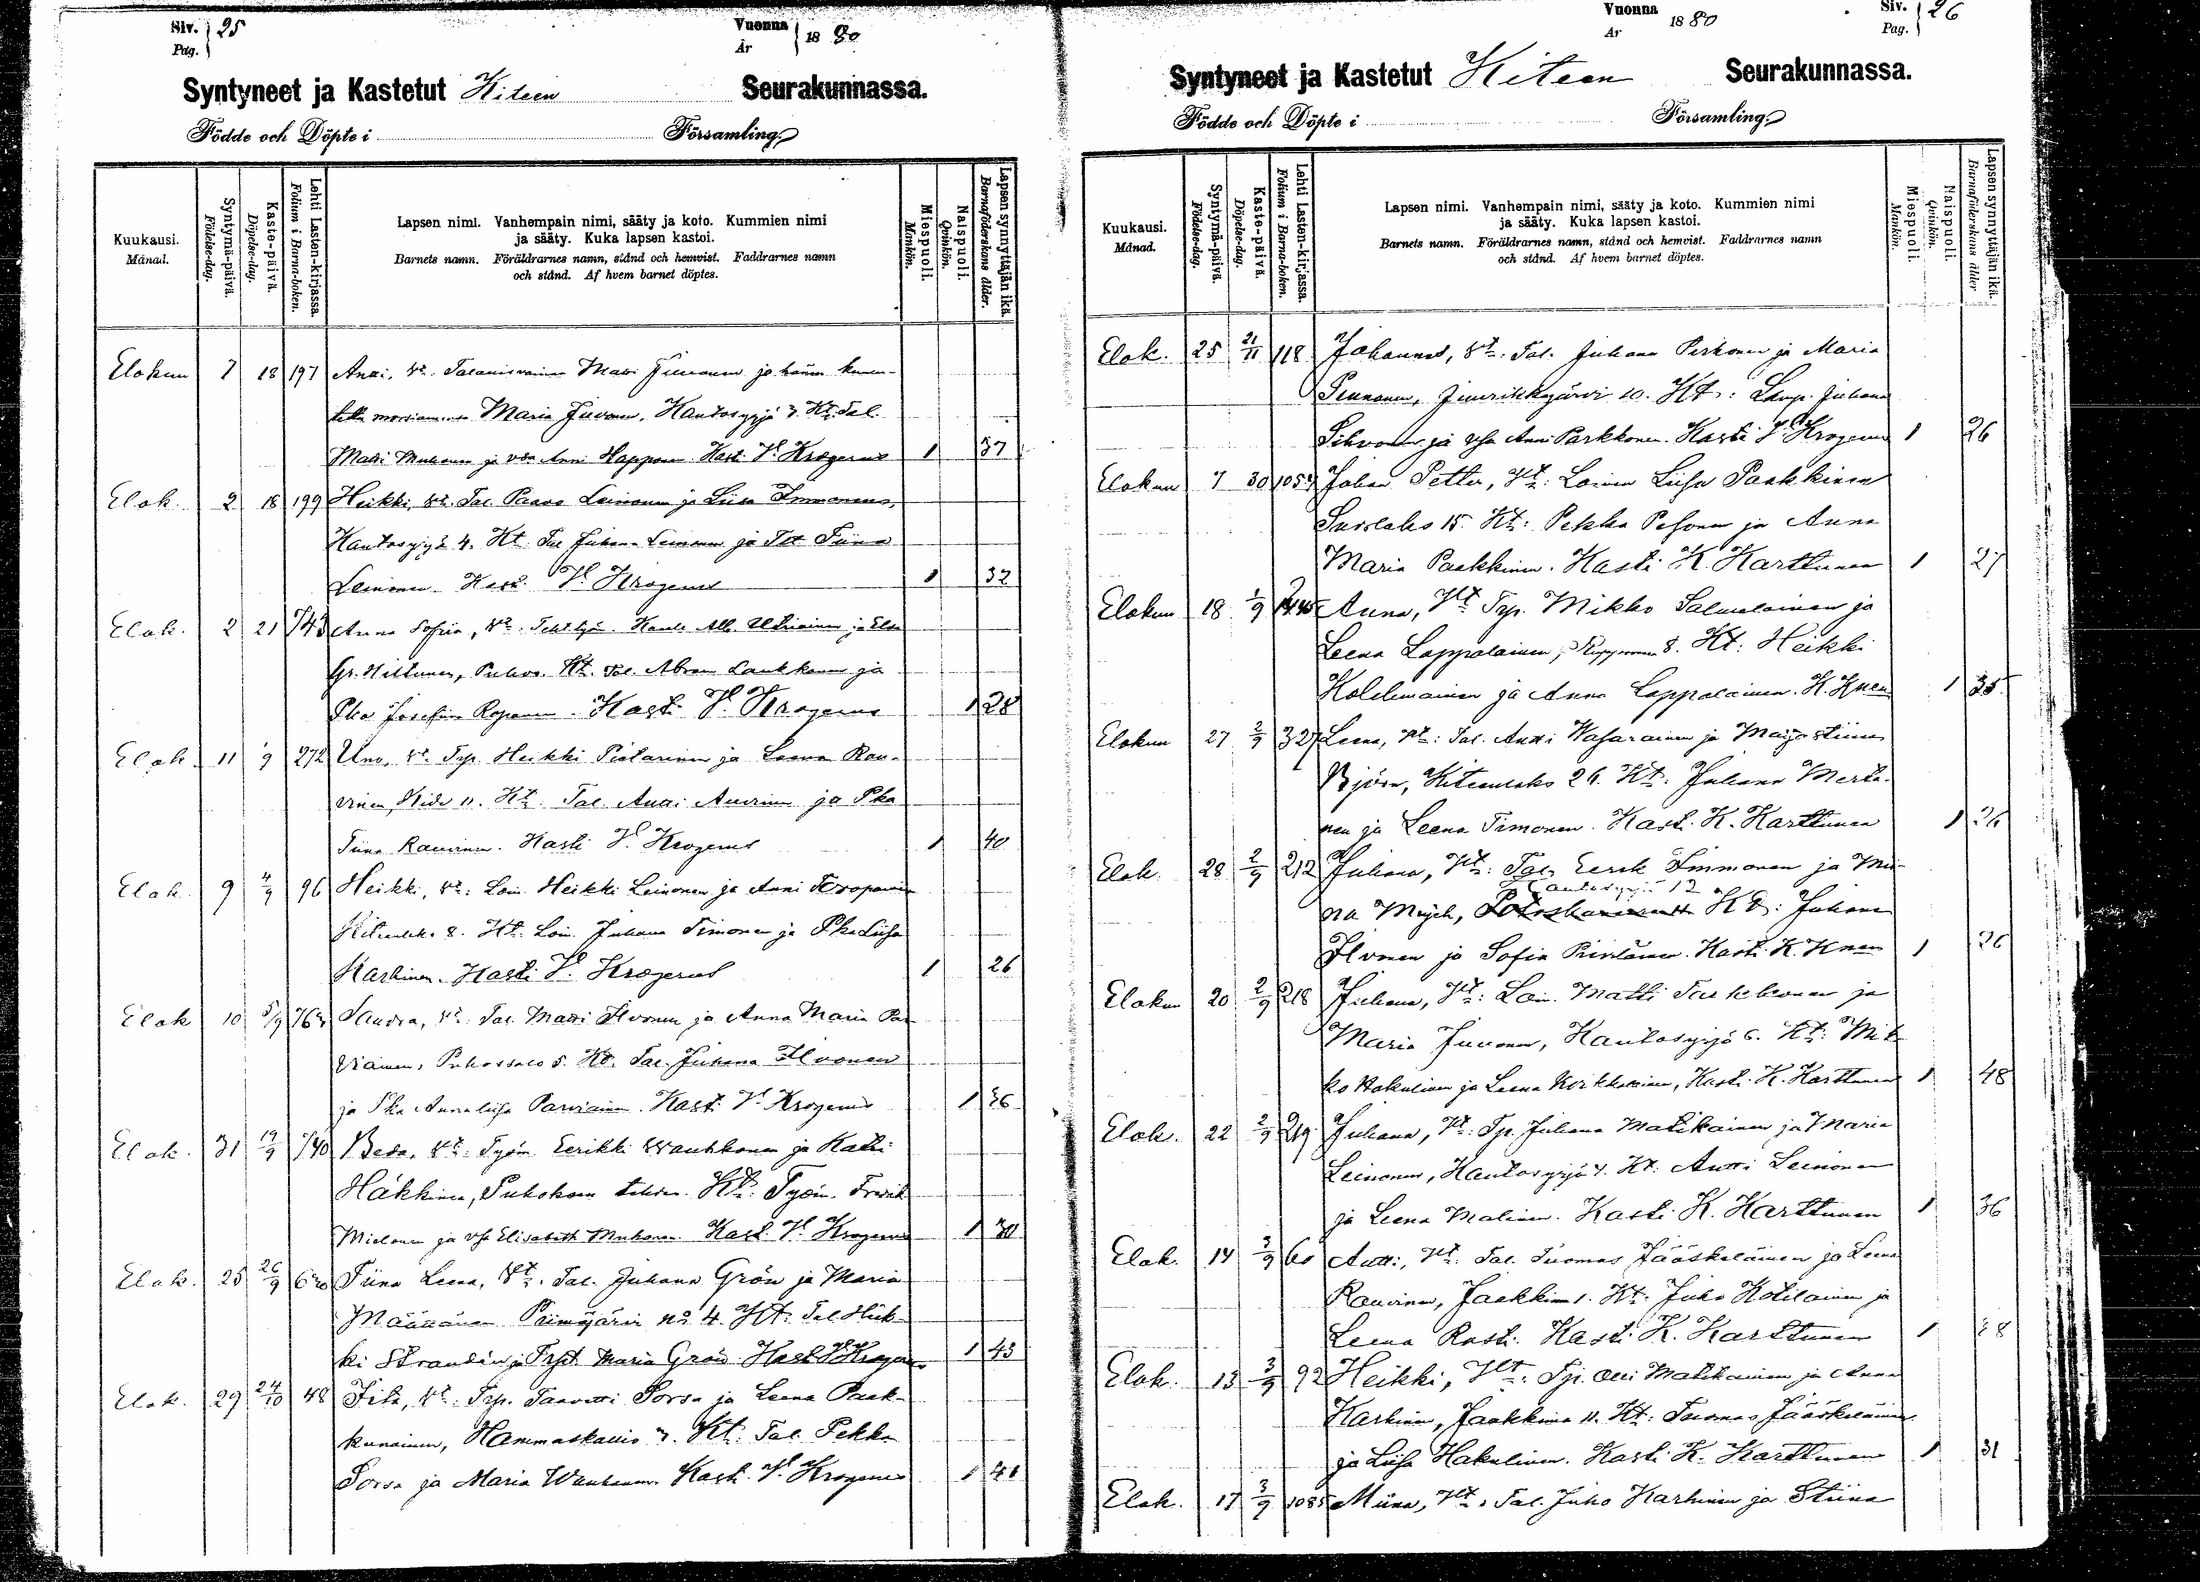 Siv. 25
Pag.
Vuonna 1880
År
Syntyneet ja Kastetut Kiteen Seurakunnassa.
Födde och Döpte i Församling.
Kuukausi. Månad.
Syntymä-päivä. Födelse-dag.
Kaste-päivä. Döpelse-dag.
Lehti Lasten-kirjassa. Folium i Barna-boken.
Lapsen nimi. Vanhempain nimi, sääty ja koto. Kummien nimi
ja sääty. Kuka lapsen kastoi.
Barnets namn. Föräldrarnes namn, stånd och hemvist. Faddrarnes namn
och stånd. Af hvem barnet döptes.
Miespuoli. Mankön.
Naispuoli. Qvinkön.
Lapsen synnyttäjän ikä. Barnaföderskans ålder.
Elokuu 7 18 197 Antti, Vt. Matti Juvonen ja hänen
Maria Juvonen, Kantosyrjä 3. Kt. Tal.
Matti Muhonen ja vsa Anni Happonen. Kasti V. Krogerus 1 37
Elok. 2 18 199 Heikki, Vt. Tal. Paavo Leinonen ja Liisa Immonen,
Kantosyrjä 4. Kt. Tal. Juhana Leinonen ja Tiina
Leinonen. Kasti V. Krogerus 1 32
Elok. 2 21 743 Anna Sofia, Vt. ja Elsa
Gr. Hiltunen, Puhos. Kt. Tal. Abram Laukkanen ja
Pka Josefina Roponen. Kasti V. Krogerus 1 28
Elok. 11 1/9 272 Uno, Vt. Typ. Heikki Pietarinen ja Leena Rau-
vinen, Kide 11. Kt. Tal. Antti Auvinen ja Pka
Tiina Rauvinen. Kasti V. Krogerus 1 40
Elok. 9 4/9 96 Heikki, Vt: Loin. Heikki Leinonen ja Anni
Kiteenlaks 8. Kt. Loin. Juhana Timonen ja Pka Liisa
Karhinen. Kasti V. Krogerus 1 26
Elok 10 5/9 763 Sandra, Vt. Tal. Matti Ilvonen ja Anna Maria Par-
viainen, Puhossalo 5. Kt. Tal. Juhana Ilvonen
ja Pka Annaliisa Parviainen. Kasti V. Krogerus 1 36
Elok. 31 19/9 740 Beda, Vt: Työm. Eerikki Vauhkonen ja Katri
Häkkinen, Puhoksen tehdas. Kt: Työm. Fredik
Mielonen ja vsa Elisabeth Muhonen. Kast. V. Krogerus 1
Elok. 25 26/9 Tiina Leena, Vt. Tal. Juhana Grön ja Maria
Määttänen Päinöjärvi no 4. Kt. Tal. Heik-
ki Strandén ja Maria Grön Kast V. Krogerus 1 43
Elok. 29 24/10 48 Vt: Typ. Taavetti Sorsa ja Leena Paak-
kunainen, Hammaskallio 3. Kt: Tal. Pekka
Sorsa ja Maria Vauhkonen. Kasti V. Krogerus 1 41
Vuonna 1880
År
Siv. 26
Pag.
Syntyneet ja Kastetut Kiteen Seurakunnassa.
Födde och Döpte i Församling.
Kuukausi. Månad.
Syntymä-päivä. Födelse-dag.
Kaste-päivä. Döpelse-dag.
Lehti Lasten-kirjassa. Folium i Barna-boken.
Lapsen nimi. Vanhempain nimi, sääty ja koto. Kummien nimi
ja sääty. Kuka lapsen kastoi.
Barnets namn. Föräldrarnes namn, stånd och hemvist. Faddrarnes namn
och stånd. Af hvem barnet döptes.
Miespuoli. Mankön.
Naispuoli. Qvinkön.
Lapsen synnyttäjän ikä. Barnaföderskans ålder
Elok. 25 21/11 118 Johannes, Vt: Tal. Juhana Pirhonen ja Maria
Pennanen, Juurikkajärvi 10. Kt: Lamp. Juhana
Sihvonen ja vsa Anni Parkkonen. Kasti V. Krogerus 1 26
Elokuu 7 30 1053 Johan Petter, Vt: Loinen Liisa Paakkinen
Suorlaks 15. Kt: Pekka Pesonen ja Anna
Maria Paakkinen. Kasti K. Karttunen 1 27
Elokuu 18 1/9 Anna, Vt. Typ. Mikko Salmelainen ja
Leena Lappalainen, 8. Kt: Heikki
Kolehmainen ja Anna Lappalainen. K. Knen 1 35
Elokuu 27 2/9 327 Leena, Vt: Tal. Antti Wasarainen ja Maija Stiina
Björn, Kiteenlaks 26. Kt: Juhana Marta-
nen ja Leena Timonen. Kast. K. Karttunen 1 26
Elok. 28 2/9 212 Juhana, Vt: Tal. Eerik Immonen ja Mii-
Kantosyrjä 12
na Mujeh, Kt: Juhana
Ilvonen ja Sofia Pirttänen. Kasti K. Knen 1 26
Elokuu 20 2/9 218 Juhana, Vt: Loin. Matti Turkkonen ja
Maria Juvonen, Kantosyrjä 6. Kt: Mik-
ko Hakulinen ja Leena Kerkkänen, Kasti K. Karttunen 1 48
Elok. 22 2/9 219 Juhana, Vt: Tp. Juhana Matikainen ja Maria
Leinonen, Kantosyrjä 4. Kt: Antti Leinonen
ja Leena Malinen. Kasti K. Karttunen 1 36
Elok. 14 3/9 60 Antti, Vt: Tal. Tuomas Jääskeläinen ja Leena
Rauvinen, Jaakkima 1. Kt: Juho Kotilainen ja
Leena Rasti. Kasti K. Karttunen 1 28
Elok. 13 3/9 92 Heikki, Vt: Tp. Olli Matikainen ja Anna
Karhinen, Jaakkima 11. Kt: Tuomas Jääskeläinen
ja Liisa Hakulinen. Kasti K. Karttunen 1 31
Elok. 17 3/9 1085 Miina, Vt: Tal. Juho Karhinen ja Stiina